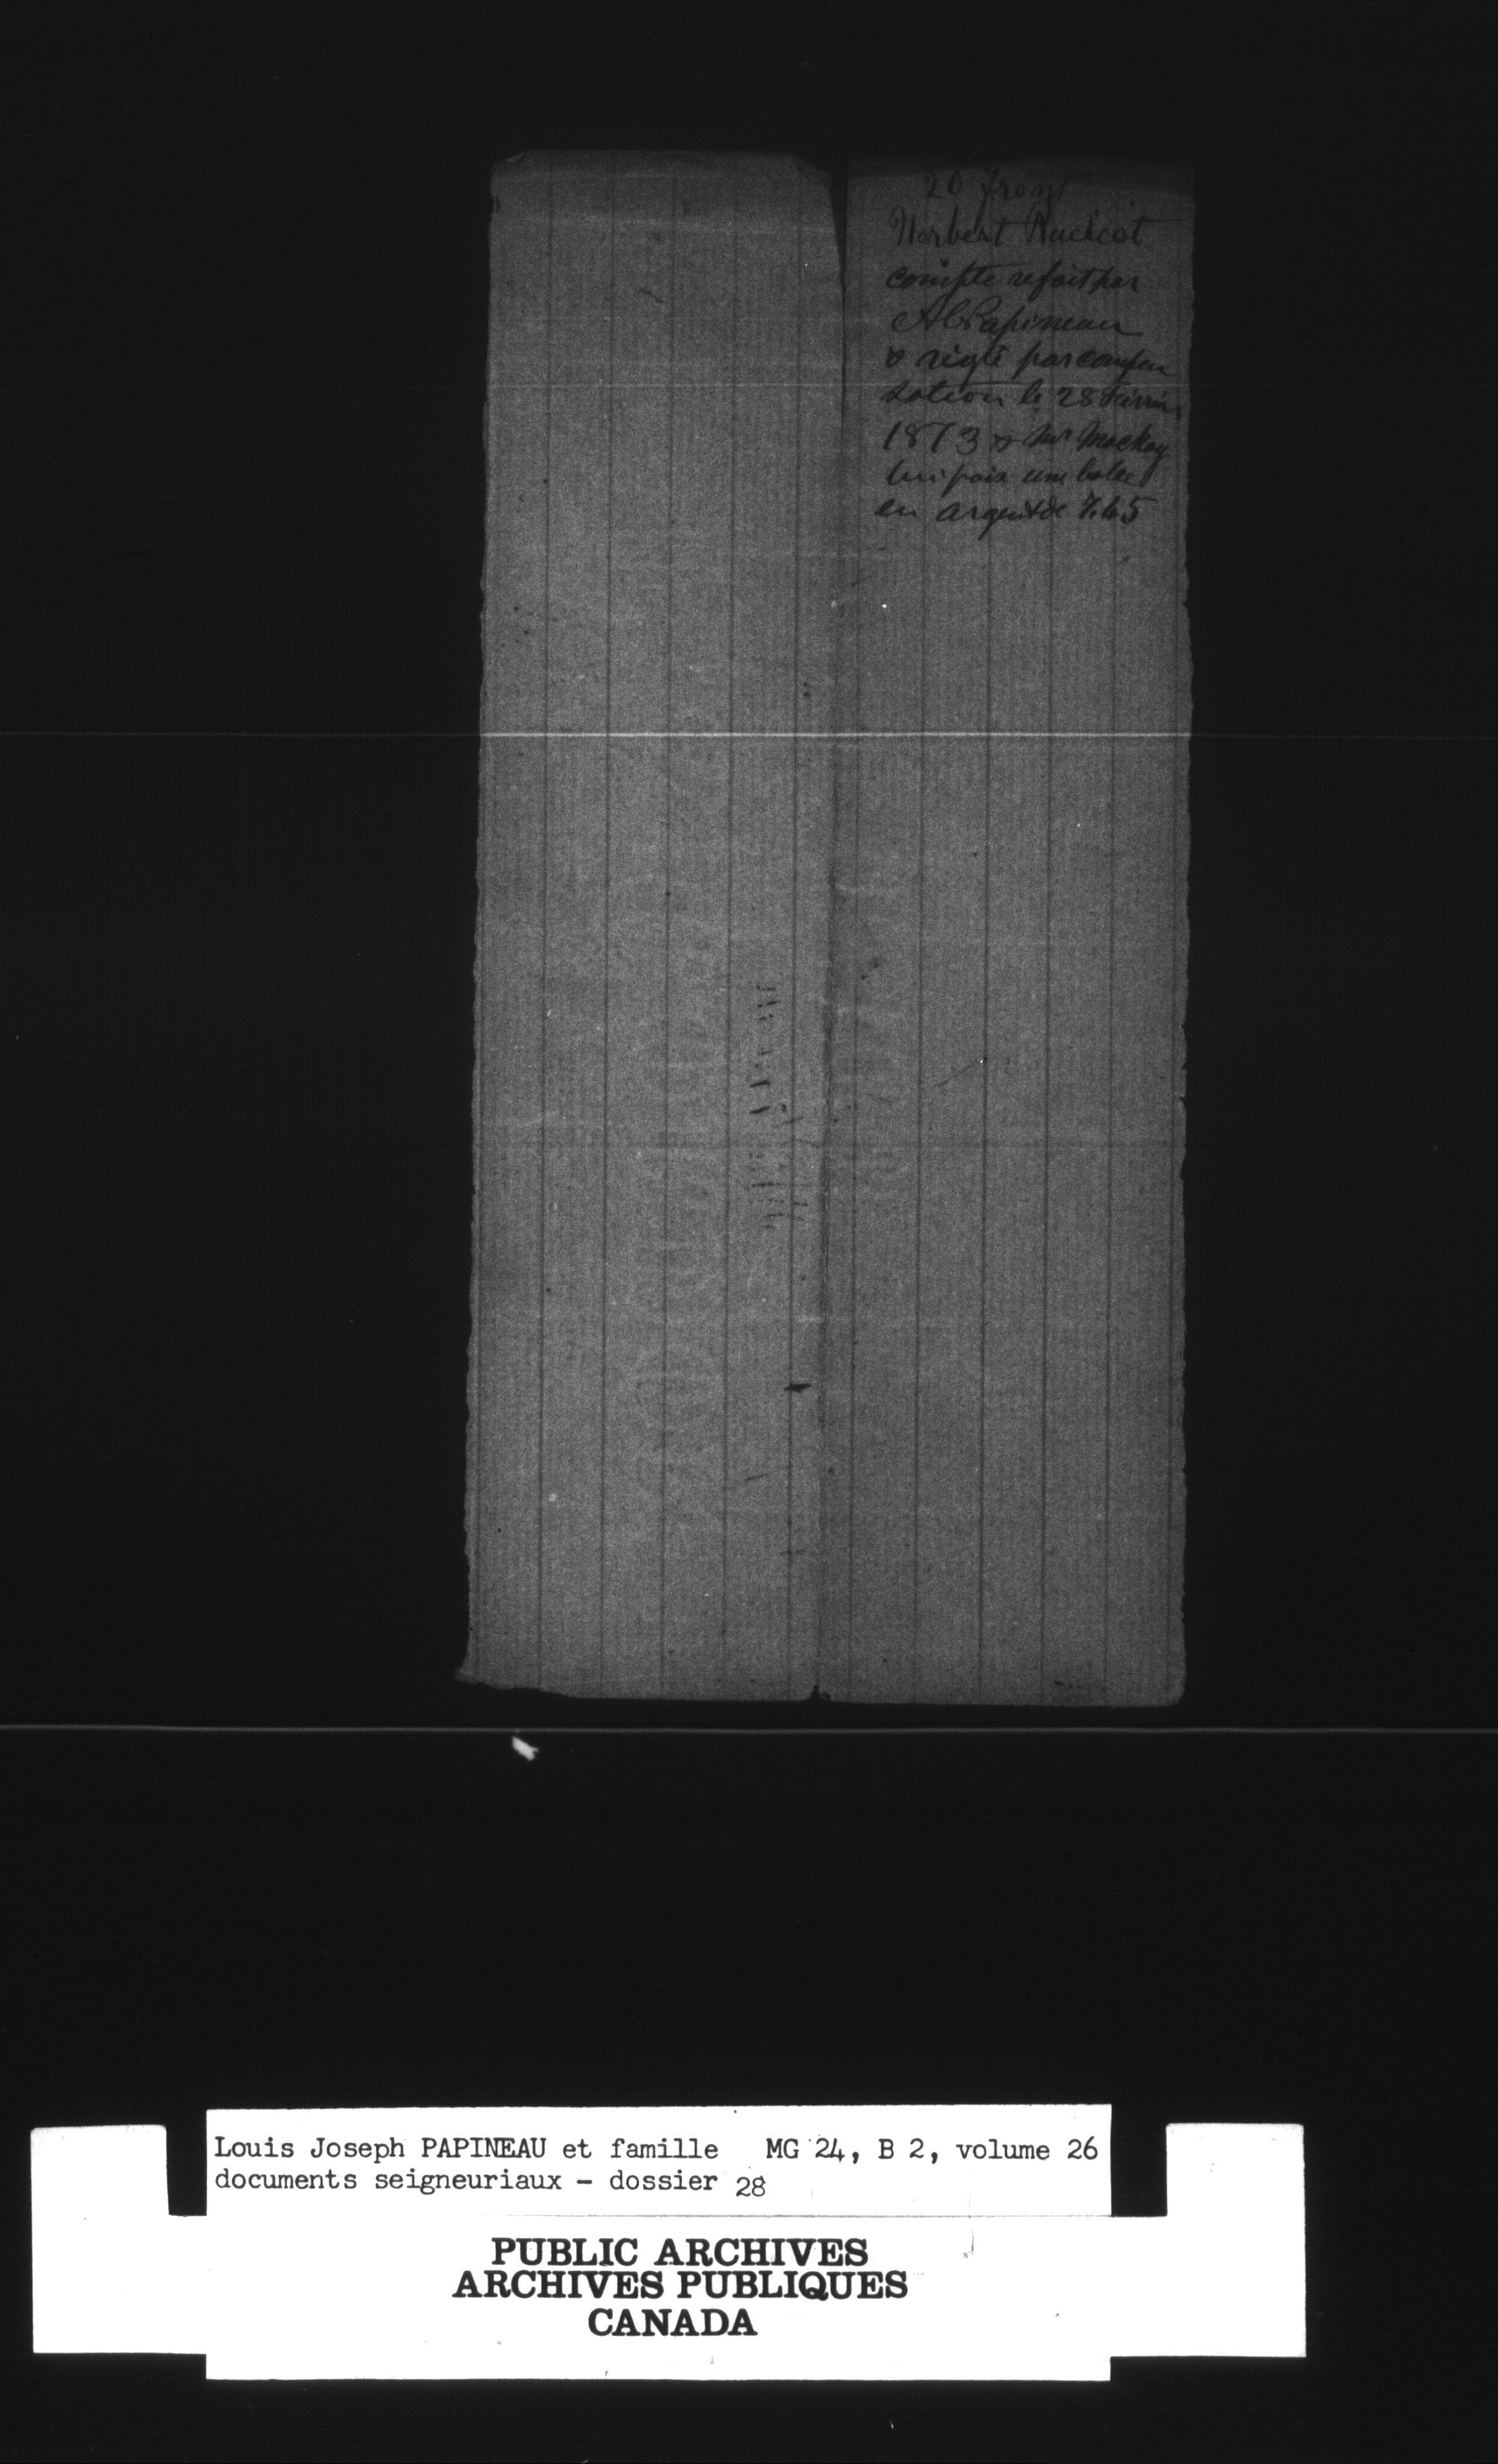 20 front
Norbert Racicot
compte refait par
A C Papineau
& réglé par compen
sation le 28 Février
1873 & Mr Mackay
lui paie une balce
en argent de 7.45
Louis Joseph PAPINEAU et famille MG 24, B 2, volume 26
documents seigneuriaux - dossier 28
PUBLIC ARCHIVES
ARCHIVES PUBLIQUES
CANADA